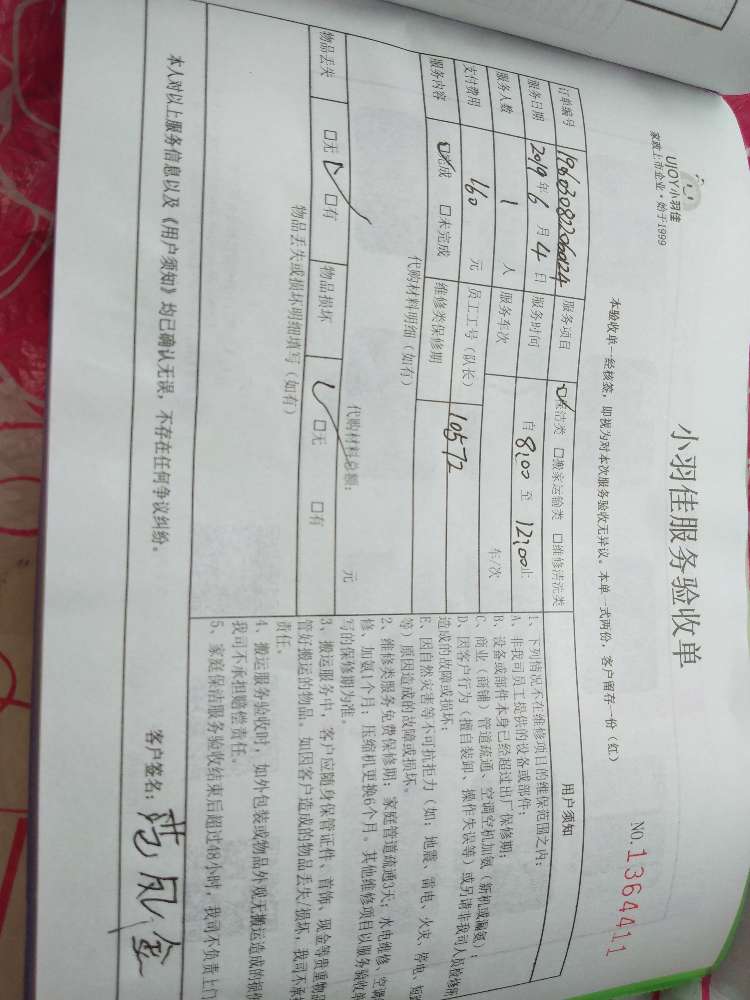 UJOY小羽佳
家政上市企业·始于1999
小羽佳服务验收单
NO.1364411
本验收单一经核签，即视为对本次服务验收无异议。本单一式两份，客户留存一份（红）
订单编号
服务项目 保洁类 □搬家运输类 □维修清洗类
服务日期 2019年6月4日 服务时间 自8:00至12:00止
服务人数 1人 服务车次 车/次
支付费用 160元 员工工号（队长） 10572
服务内容 ☑完成 □未完成 维修类保修期
代购材料明细（如有）
代购材料总额： 元
物品丢失 □无 □有 物品损坏 □无 □有
物品丢失或损坏明细填写（如有）
用户须知
1、下列情况不在维修项目的维保范围之内：
A、非我司员工提供的设备或部件；
B、设备或部件本身已经超过出厂保修期；
C、商业（商铺）管道疏通、空调空机加氨（新机或漏氨）；
D、因客户行为（擅自装卸、操作失误等）或另请非我司人员维修所
造成的故障或损坏；
E、因自然灾害等不可抗拒力（如：地震、雷电、火灾、停电、短路
等）原因造成的故障或损坏。
2、维修类服务免费保修期：家庭管道疏通3天；水电维修、空调
修、加氨1个月；压缩机更换6个月。其他维修项目以服务验收单
写的保修期为准。
3、搬运服务中，客户应随身保管证件、首饰、现金等贵重物品
管好搬运的物品。如因客户造成的物品丢失/损坏，我司不承担
责任。
4、搬运服务验收时，如外包装或物品外观无搬运造成的损
我司不承担赔偿责任。
5、家庭保洁服务验收结束后超过48小时，我司不负责上门
本人对以上服务信息以及《用户须知》均已确认无误，不存在任何争议纠纷。
客户签名：范凤金